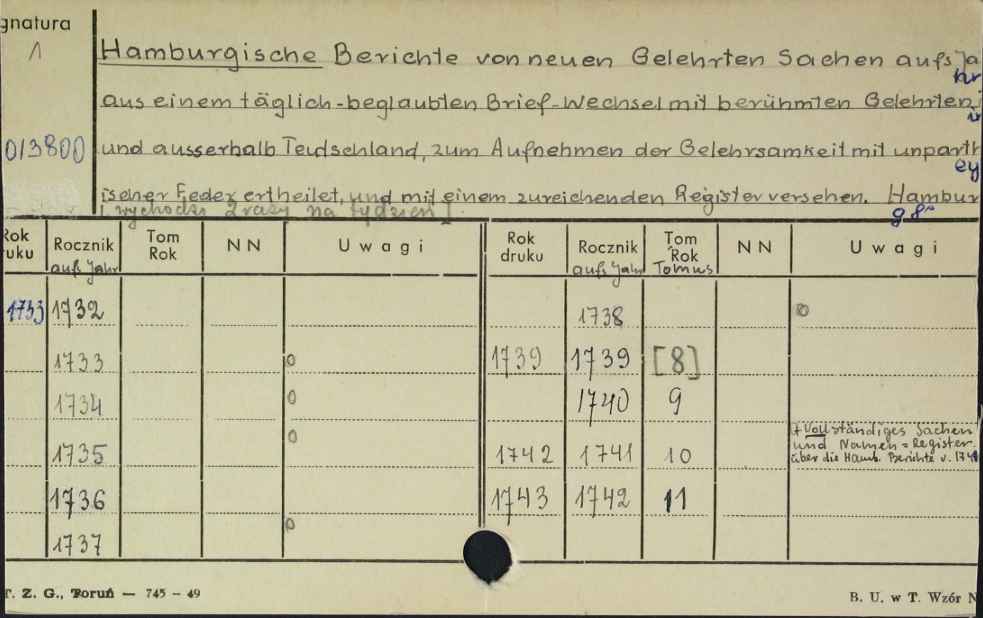 gnatura
1
013800
Hamburgische Berichte von neuen Gelehrten Sachen aufs Ja
hr
aus einem täglich-beglaubten Brief-Wechsel mit berühmten Gelehrten i
n
und ausserhalb Teutschland, zum Aufnehmen der Gelehrsamkeit mit unparth
ey
ischer Feder ertheilet, und mit einem zureichenden Register versehen. Hambur
g 8°
[wychodzi 2 razy na tydzień].
Rok uku Rocznik aufs Jahr Tom Rok NN Uwagi Rok druku Rocznik aufs Jahr Tom Rok Tomus NN Uwagi
1733 1732 1738 0
1733 0 1739 1739 [8]
1734 0 1740 9
1735 0 1742 1741 10 + Vollständiges Sachen
und Namen = Register
über die Hamb. Berichte v. 1741
1736 1743 1742 11
1737 0
T. Z. G., Toruń — 745 - 49
B. U. w T. Wzór N